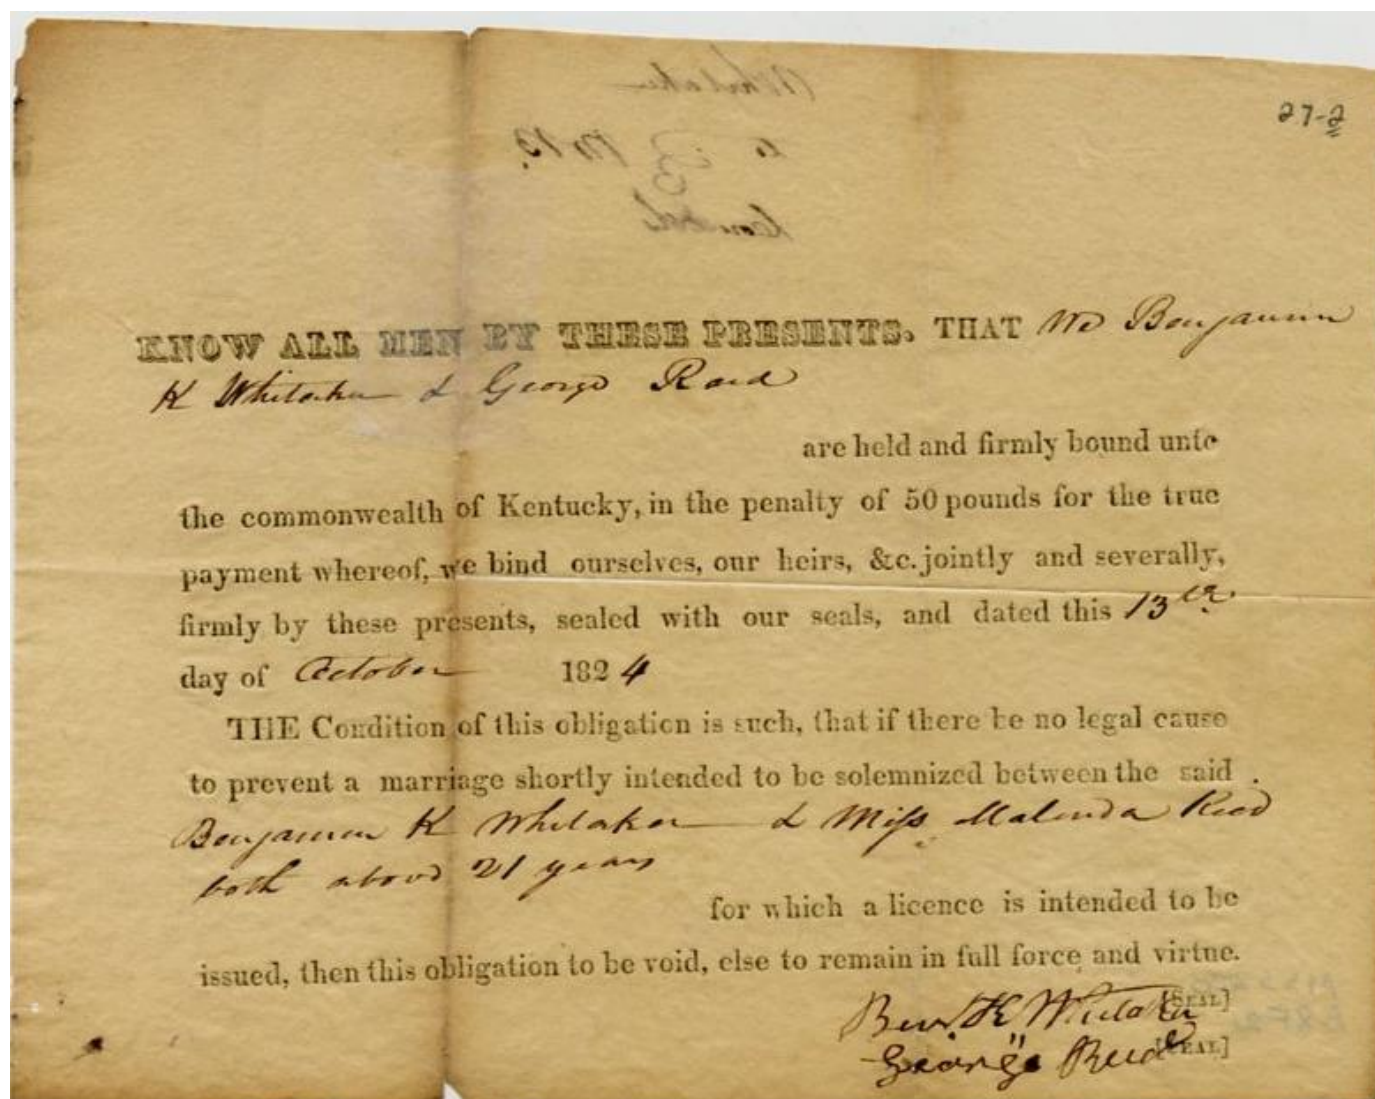 27-2
KNOW ALL MEN BY THESE PRESENTS, THAT We Benjamin
K Whitaker & George Read
are held and firmly bound unto
the commonwealth of Kentucky, in the penalty of 50 pounds for the true
payment whereof, we bind ourselves, our heirs, &c. jointly and severally,
firmly by these presents, sealed with our seals, and dated this 13th
day of October 1824
THE Condition of this obligation is such, that if there be no legal cause
to prevent a marriage shortly intended to be solemnized between the said
Benjamin K Whitaker & Miss Malinda Reed
both above 21 years
for which a licence is intended to be
issued, then this obligation to be void, else to remain in full force and virtue.
Ben. K Whitaker [SEAL]
George Reed [SEAL]